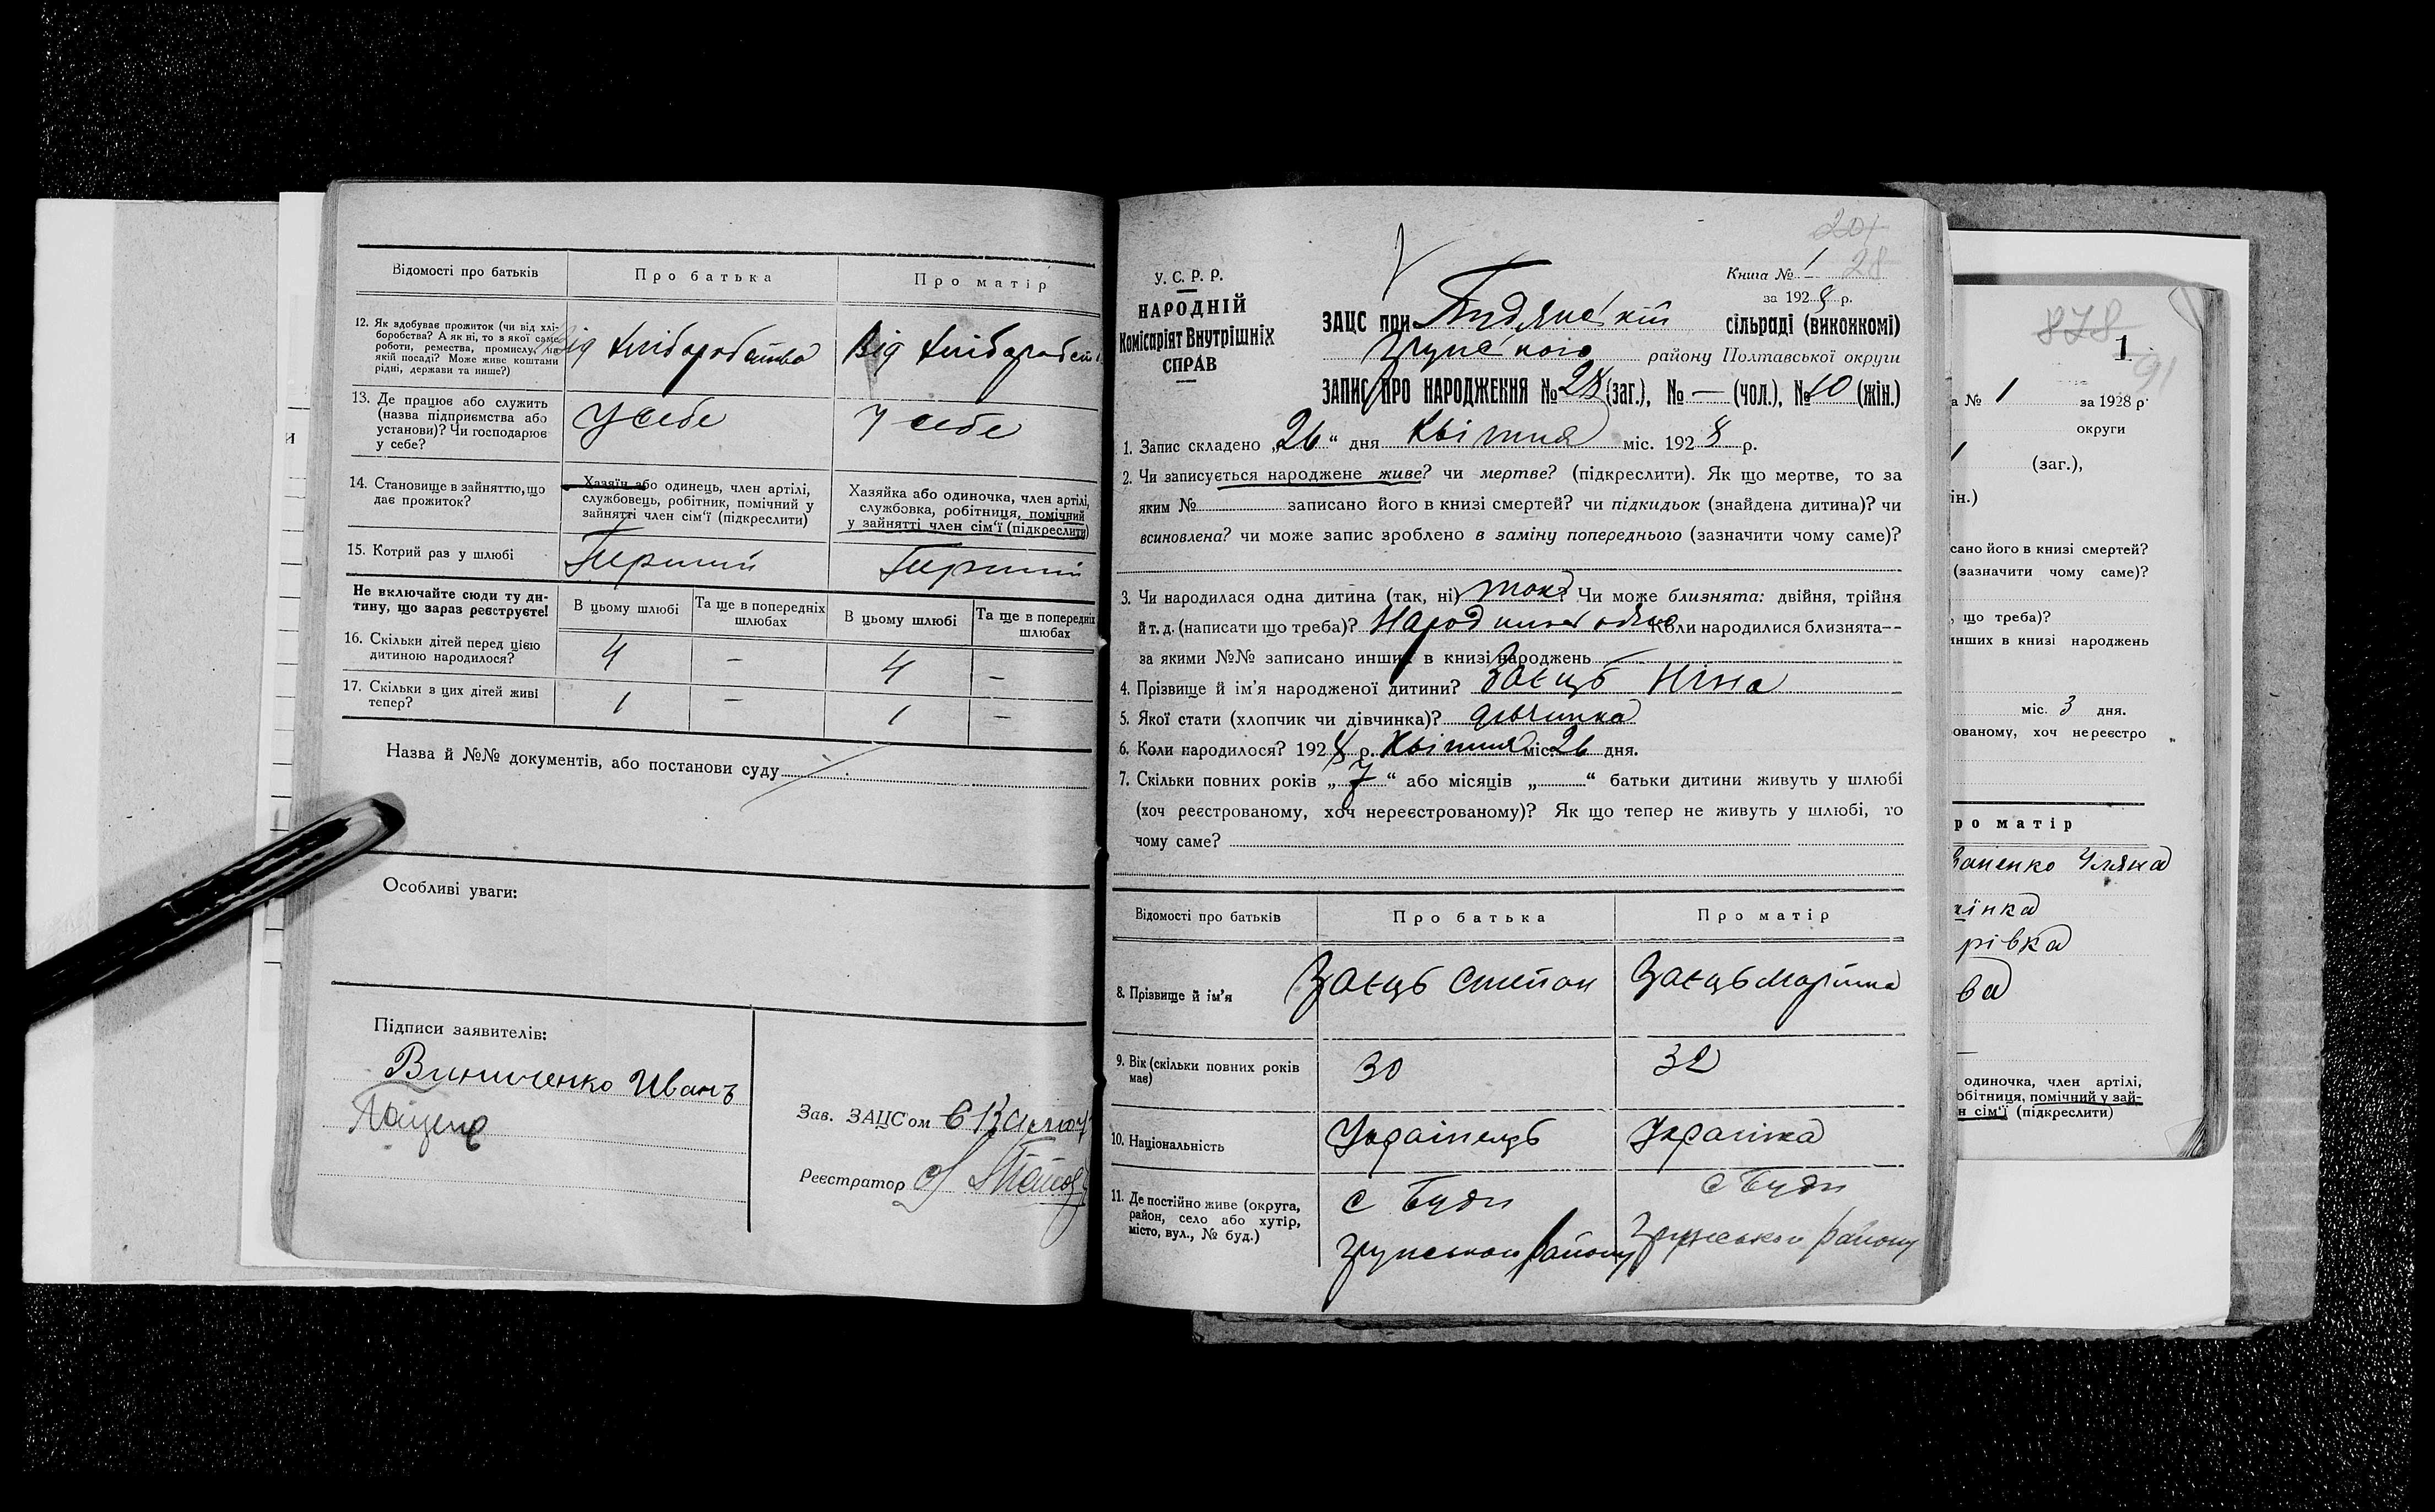 Відомості про батьків
Про батька
Про матір
12. Як здобуває прожиток (чи від хлі-
боробства? А як ні, то з якої саме
роботи, ремества, промислу, на
якій посаді? Може живе коштами
рідні, держави та инше?)
Від хліборобства
Від хліборобств
13. Де працює або служить
(назва підприємства або
установи)? Чи господарює
у себе?
У себе
У себе
14. Становище в зайняттю, що
дає прожиток?
Хазяїн або одинець, член артілі,
службовець, робітник, помічний у
зайнятті член сім'ї (підкреслити)
Хазяйка або одиночка, член артілі,
службовка, робітниця, помічний
у зайнятті член сім'ї (підкреслити)
15. Котрий раз у шлюбі
Перший
Перший
Не включайте сюди ту ди-
тину, що зараз реєструєте!
В цьому шлюбі
Та ще в попередніх
шлюбах
В цьому шлюбі
Та ще в попередніх
шлюбах
16. Скільки дітей перед цією
дитиною народилося?
4 — 4 —
17. Скільки з цих дітей живі
тепер?
1 — 1 —
Назва й №№ документів, або постанови суду
Особливі уваги:
Підписи заявителів:
Виниченко Иванъ
Зав. ЗАЦС'ом
Реєстратор
У. С. Р. Р.
НАРОДНІЙ
Комісаріят Внутрішніх
СПРАВ
201
28
Книга № 1
за 1928 р.
ЗАЦС при сільраді (виконкомі)
району Полтавської округи
ЗАПИС ПРО НАРОДЖЕННЯ № 28 (заг.), № — (чол.), № 10 (жін.)
1. Запис складено „26“ дня Квітня міс. 1928 р.
2. Чи записується народжене живе? чи мертве? (підкреслити). Як що мертве, то за
яким № записано його в книзі смертей? чи підкидьок (знайдена дитина)? чи
всиновлена? чи може запис зроблено в заміну попереднього (зазначити чому саме)?
3. Чи народилася одна дитина (так, ні) Чи може близнята: двійня, трійня
й т. д. (написати що треба)? Коли народилися близнята—
за якими №№ записано инших в книзі народжень
4. Прізвище й ім'я народженої дитини? Заєць Ніна
5. Якої стати (хлопчик чи дівчинка)? дівчинка
6. Коли народилося? 1928 р. Квітня міс. 26 дня.
7. Скільки повних років „7“ або місяців „ “ батьки дитини живуть у шлюбі
(хоч реєстрованому, хоч нереєстрованому)? Як що тепер не живуть у шлюбі, то
чому саме?
Відомості про батьків
Про батька
Про матір
8. Прізвище й ім'я
Заєць Степан
Заєць
9. Вік (скільки повних років
має)
30
32
10. Національність
Українець
Українка
11. Де постійно живе (округа,
район, село або хутір,
місто, вул., № буд.)
с Буди
району
с Буди
району
878
1.
91
а № 1 за 1928 р.
округи
(заг.),
ін.)
сано його в книзі смертей?
(зазначити чому саме)?
, що треба)?
нших в книзі народжень
міс. 3 дня.
ованому, хоч нереєстро
ро матір
Уляна
їнка
рівка
ва
одиночка, член артілі,
обітниця, помічний у зай-
н сім'ї (підкреслити)